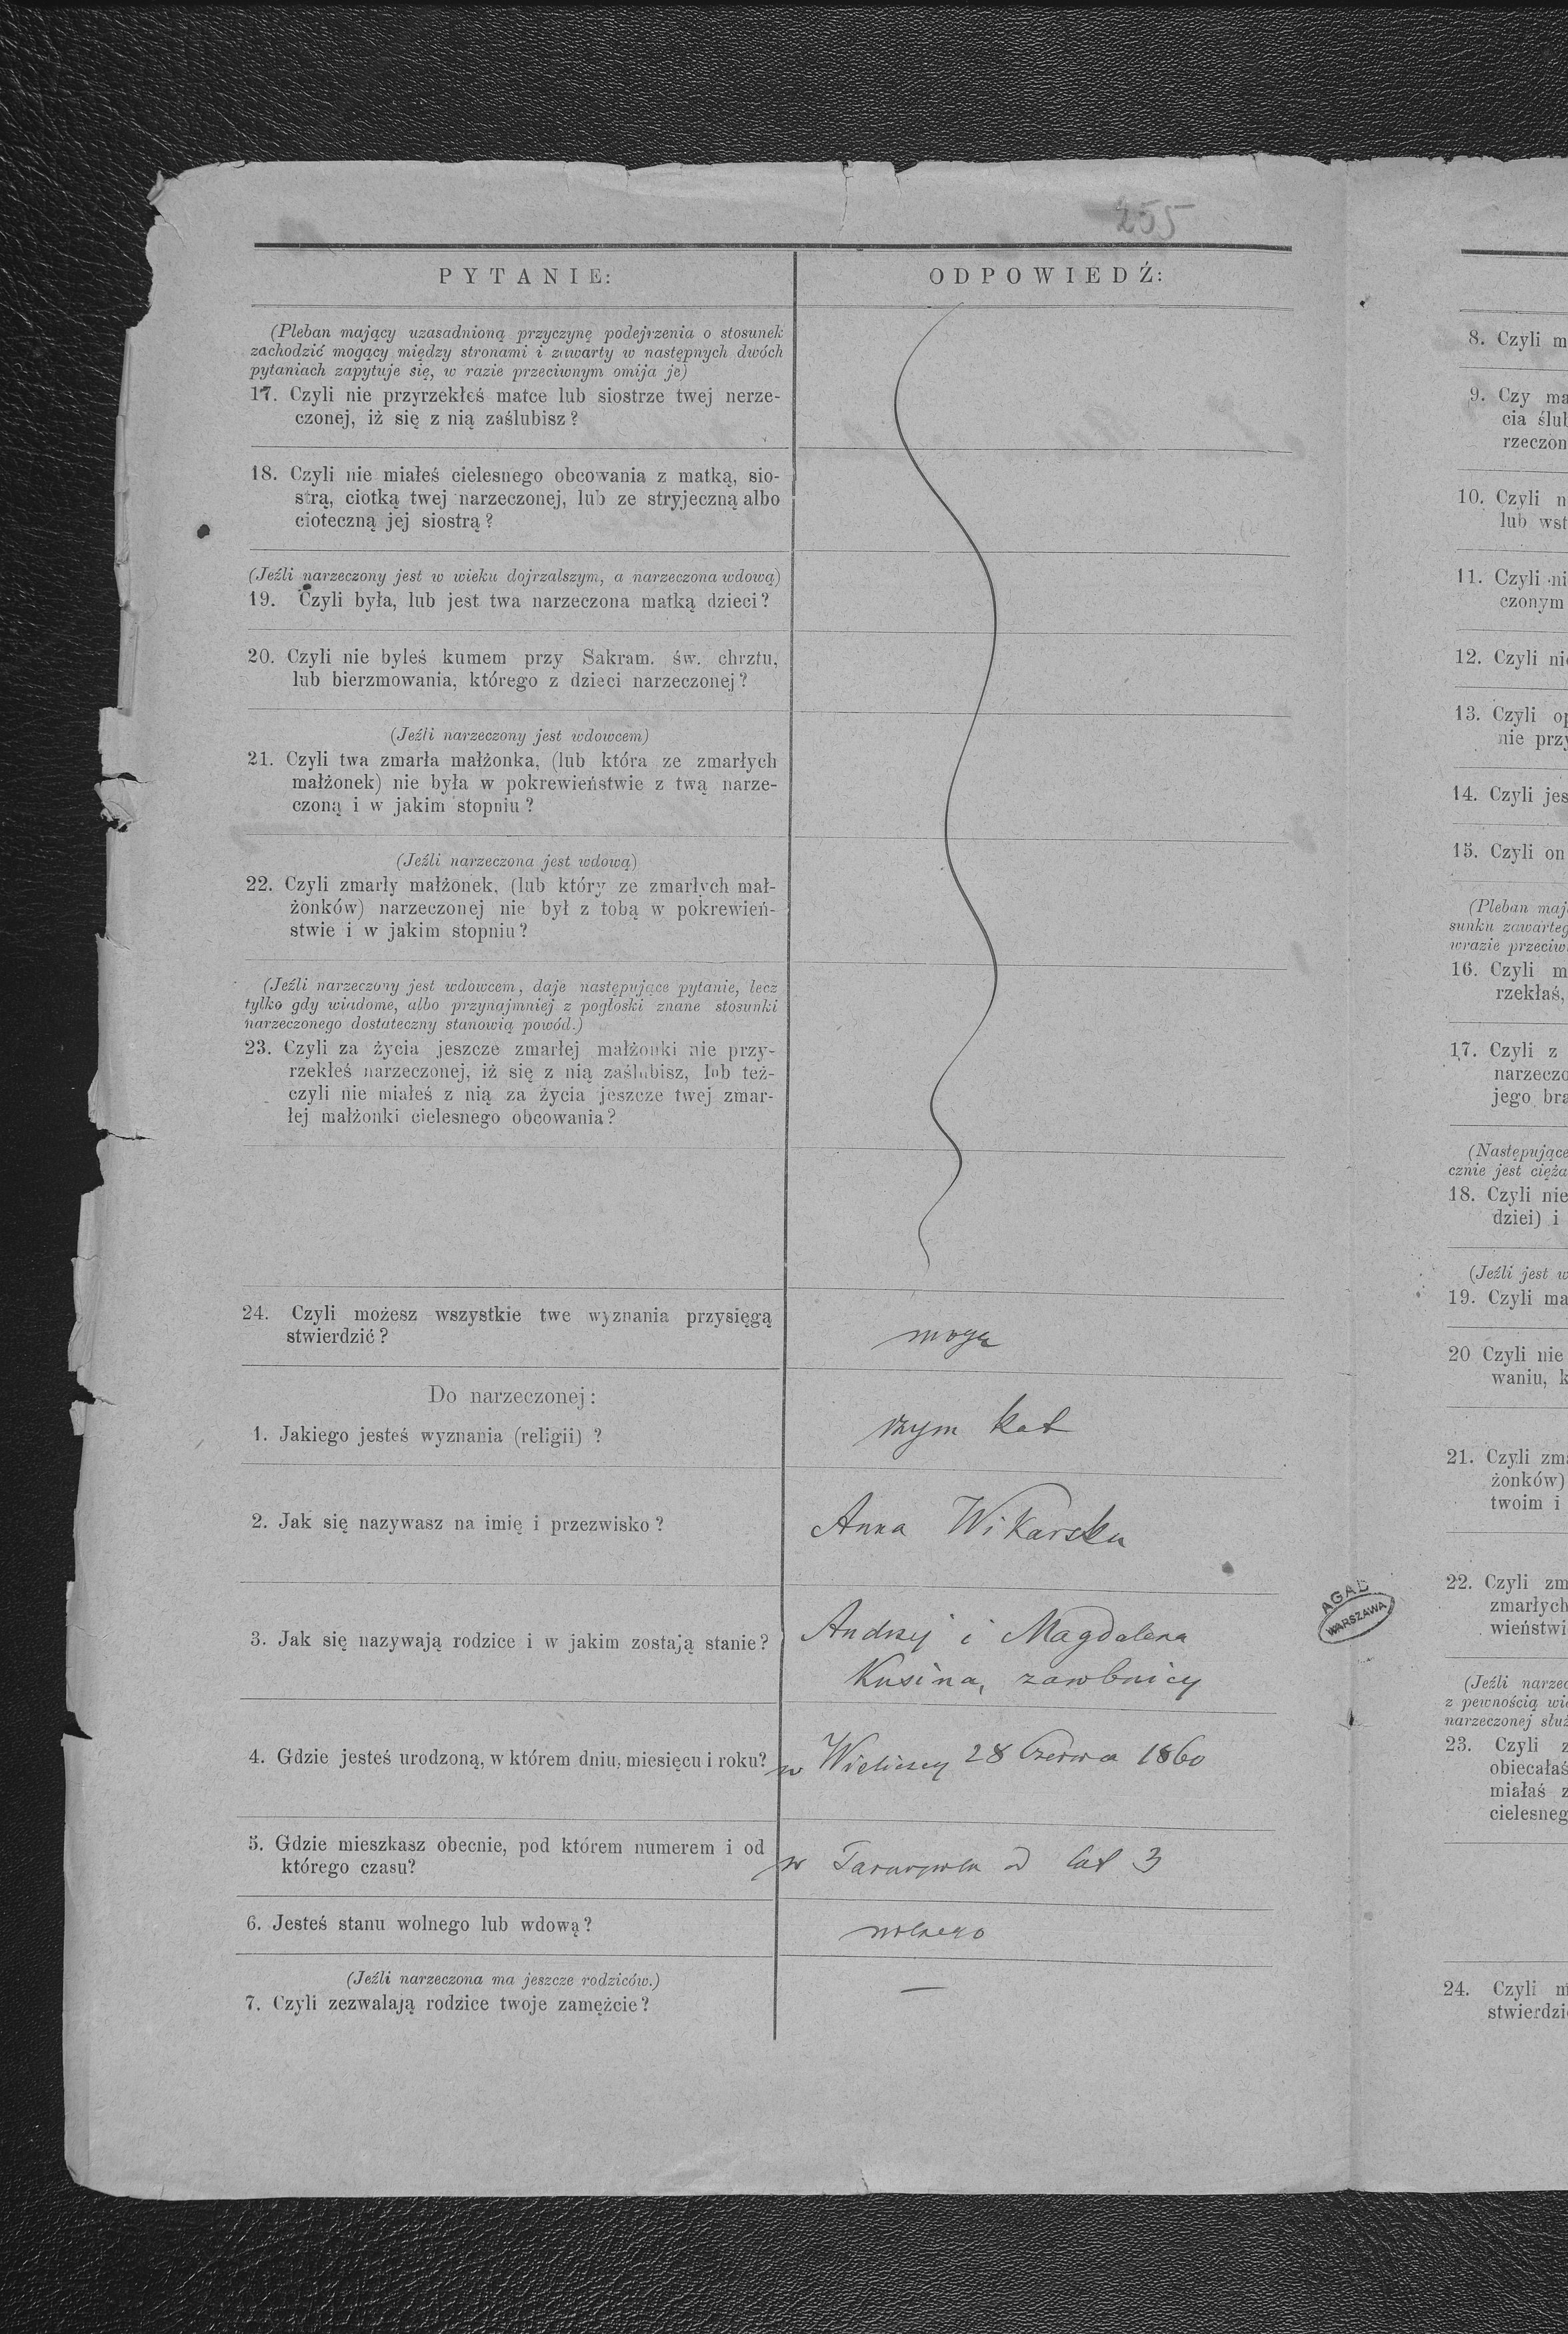 255
PYTANIE:
ODPOWIEDŹ:
(Pleban mający uzasadnioną przyczynę podejrzenia o stosunek
zachodzić mogący między stronami i zawarty w następnych dwóch
pytaniach zapytuje się, w razie przeciwnym omija je)
17. Czyli nie przyrzekłeś matce lub siostrze twej nerze-
czonej, iż się z nią zaślubisz?
18. Czyli nie miałeś cielesnego obcowania z matką, sio-
strą, ciotką twej narzeczonej, lub ze stryjeczną albo
cioteczną jej siostrą?
(Jeźli narzeczony jest w wieku dojrzalszym, a narzeczona wdową)
19. Czyli była, lub jest twa narzeczona matką dzieci?
20. Czyli nie byleś kumem przy Sakram. św. chrztu,
lub bierzmowania, którego z dzieci narzeczonej?
(Jeźli narzeczony jest wdowcem)
21. Czyli twa zmarła małżonka, (lub która ze zmarłych
małżonek) nie była w pokrewieństwie z twą narze-
czoną i w jakim stopniu?
(Jeźli narzeczona jest wdową)
22. Czyli zmarły małżonek, (lub który ze zmarłych mał-
żonków) narzeczonej nie był z tobą w pokrewień-
stwie i w jakim stopniu?
(Jeźli narzeczony jest wdowcem, daje następujące pytanie, lecz
tylko gdy wiadome, albo przynajmniej z pogłoski znane stosunki
narzeczonego dostateczny stanowią powód.)
23. Czyli za życia jeszcze zmarłej małżonki nie przy-
rzekłeś narzeczonej, iż się z nią zaślubisz, lub też-
czyli nie miałeś z nią za życia jeszcze twej zmar-
łej małżonki cielesnego obcowania?
24. Czyli możesz wszystkie twe wyznania przysięgą
stwierdzić?
mogę
Do narzeczonej:
1. Jakiego jesteś wyznania (religii) ?
rzym kat
2. Jak się nazywasz na imię i przezwisko?
Anna Wikarska
3. Jak się nazywają rodzice i w jakim zostają stanie?
Andrzej i Magdalena
Kusina, zarobnicy
4. Gdzie jesteś urodzoną, w którem dniu, miesięcu i roku?
w Wieliczcy 28 Czerwca 1860
5. Gdzie mieszkasz obecnie, pod którem numerem i od
którego czasu?
w od lat 3
6. Jesteś stanu wolnego lub wdową?
wolnego
(Jeźli narzeczona ma jeszcze rodziców.)
7. Czyli zezwalają rodzice twoje zamężcie?
—
AGAD
WARSZAWA
8. Czyli m
9. Czy ma
cia ślub
rzeczon
10. Czyli n
lub wst
11. Czyli ni
czonym
12. Czyli nie
13. Czyli op
nie przy
14. Czyli jes
15. Czyli on
(Pleban maj
sunku zawarteg
wrazie przeciw
16. Czyli m
rzekłaś,
17. Czyli z
narzeczo
jego bra
(Następujące
cznie jest cięża
18. Czyli nie
dziei) i
(Jeźli jest w
19. Czyli ma
20 Czyli nie
waniu, k
21. Czyli zma
żonków)
twoim i
22. Czyli zm
zmarłych
wieństwi
(Jeźli narzec
z pewnością wi
narzeczonej służ
23. Czyli z
obiecałaś
miałaś z
cielesneg
24. Czyli m
stwierdzi